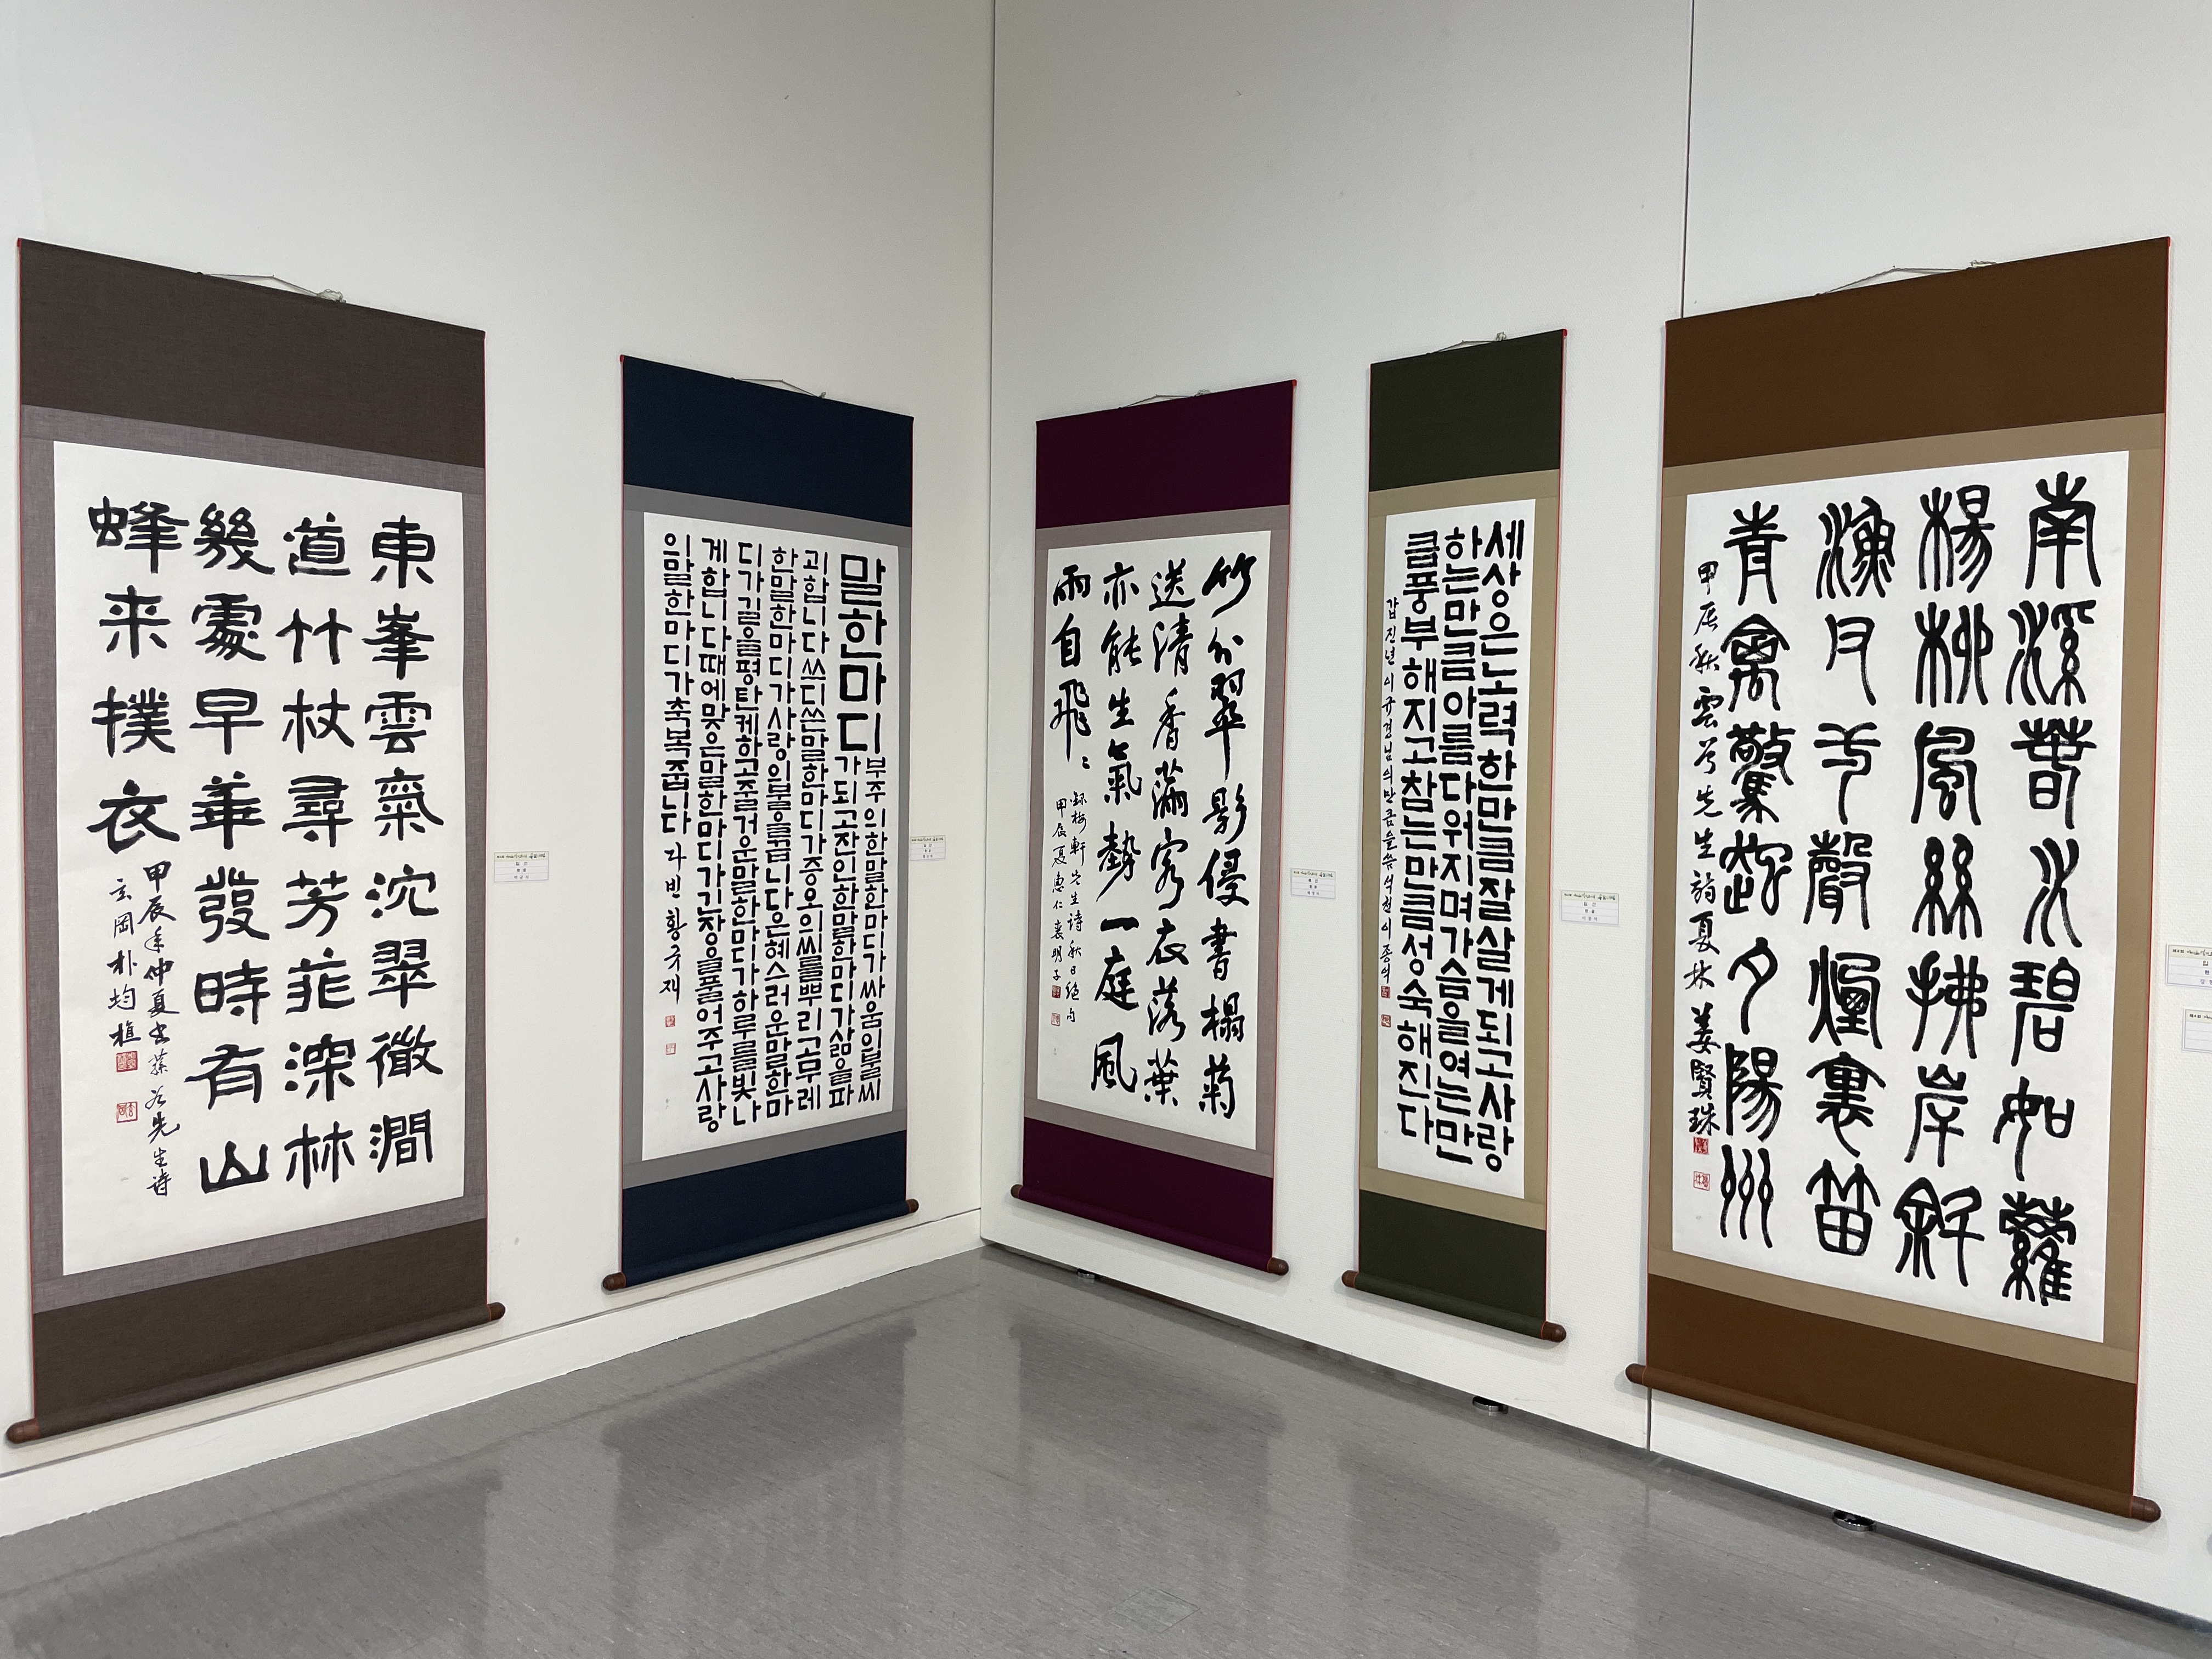 東峯雲氣沈翠微澗
道竹杖尋芳菲深林
幾處早華發時有山
蜂来撲衣
甲辰年仲夏書蓀谷先生詩
玄岡朴均樵
말한마디
부주의한말한마디가싸움의불씨
가되고잔인한말한마디가삶을파
괴합니다쓰디쓴말한마디가증오의씨를뿌리고무레
한말한마디가사랑의불을끕니다은혜스러운말한마
디가길을평탄케하고즐거운말한마디가하루를빛나
게합니다때에맞은말한마디가긴장을풀어주고사랑
의말한마디가축복줍니다 다빈 황규재
竹分翠影侵書榻菊
送清香滿客衣落葉
亦能生氣勢一庭風
雨自飛〻
録梅軒先生詩秋日絶句
甲辰夏惠仁裵明子
세상은노력한만큼잘살게되고사랑
하는만큼아름다워지며가슴을여는만
큼풍부해지고참는만큼성숙해진다
갑진년이규경님의만큼을씀석천이종억
南溪春水碧如蘿
楊柳風絲拂岸斜
漁 聲煙裏笛
青禽驚起夕陽州
甲辰秋雲谷先生詩夏林姜賢珠